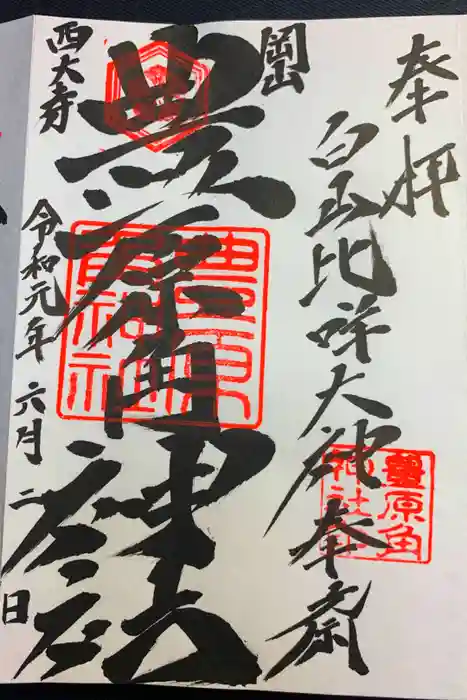 奉拝
白山比咩大神奉斎
岡山
豊原角神社
西大寺
令和元年六月二日
豊原角神社